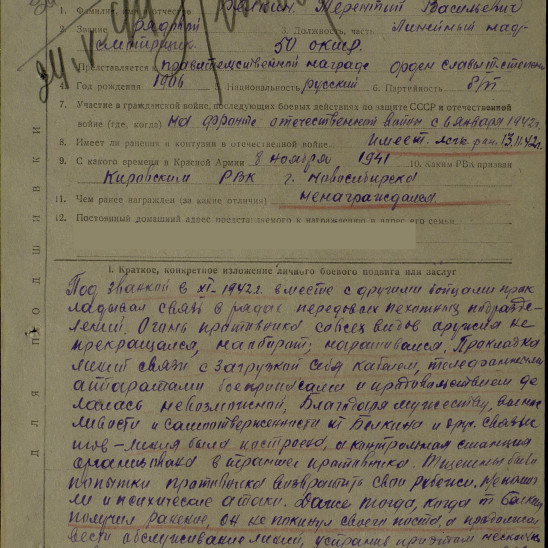 1. Фамилия, имя и отчество Былкин Терентий Васильевич
2. Звание рядовой 3. Должность, часть Линейный над-
смотрщик 50 окстр.
4. Представляется к правительственной награде орден славы III степени
5. Год рождения 1906 5. Национальность русский 6. Партийность б/п
7. Участие в гражданской войне, последующих боевых действиях по защите СССР и отечественной
войне (где, когда) на фронте отечественной войны с 8 января 1942 г.
8. Имеет ли ранения и контузии в отечественной войне имеет легк. ран. 13.11.42г.
9. С какого времени в Красной Армии 8 ноября 1941 10. Каким РВК призван
Кировским РВК г. Новосибирска
11. Чем ранее награжден (за какие отличия) ненаграждался
12. Постоянный домашний адрес представляемого к награждению и адрес его семьи
I. Краткое, конкретное изложение личного боевого подвига или заслуг
Под Званкой в XI-1942 г. вместе с другими бойцами прок
ладывал связь в рядах передовых пехотных подразде-
лений. Огонь противника со всех видов оружия не
прекращался, наоборот, наращивался. Прокладка
линий связи с загрузкой себя кабелем, телефонными
аппаратами боеприпасами и продовольствием де
лалась невозможной, Благодаря мужеству, вынос
ливости и самоотверженности т. Былкина и друг. связис
тов – линия была построена, а контрольная станция
организована в траншее противника. Тщетны были
попытки противника возвратить свои рубежи. Не помог
ли и психические атаки. Даже тогда, когда т Былкин
получил ранение, он не покинул своего поста, а продолжал
вести обслуживание линий, устранив при этом несколько
ДЛЯ ПОДШИВКИ